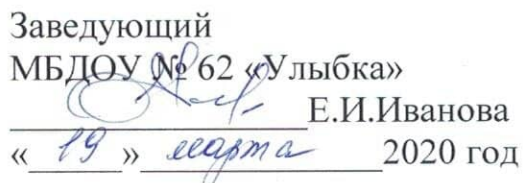 Заведующий
МБДОУ № 62 «Улыбка»
Е.И.Иванова
« 19 » марта 2020 год